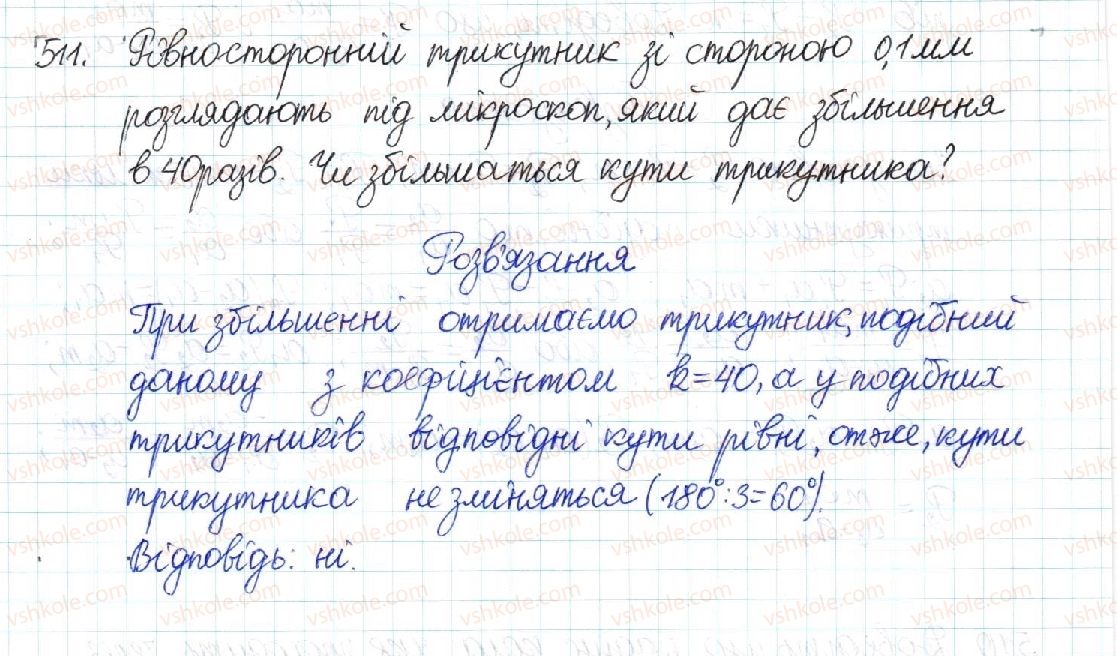 511. Рівносторонній трикутник зі стороною 0,1 мм
розглядають під мікроскоп, який дає збільшення
в 40 разів. Чи збільшаться кути трикутника?
Розв'язання
При збільшенні отримаємо трикутник, подібний
даному з коефіцієнтом k=40, а у подібних
трикутників відповідні кути рівні, отже, кути
трикутника не зміняться (180°:3=60°).
Відповідь: ні.